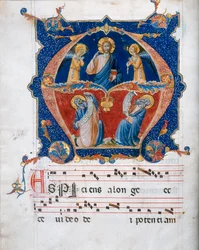 ASPiciens alonge ec
ce video de i potenciam